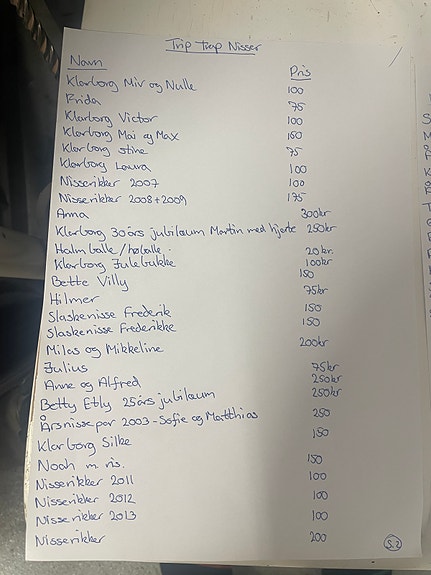 Trip Trap Nisser
Navn Pris
Klarborg Miv og Nulle 100
Frida 75
Klarborg Victor 100
Klarborg Mai og Max 150
Klarborg Stine 75
Klarborg Laura 100
Nisserikker 2007 100
Nisserikker 2008+2009 175
Anna 300kr
Klarborg 30års jubilæum Martin med hjerte 250kr
Halmballe/høballe. 20kr.
Klarborg Julebukke 100kr
Bette Villy 150
Hilmer 75kr
Slaskenisse Frederik 150
Slaskenisse Frederikke 150
Milas og Mikkeline 200kr
Julius 75kr
Anne og Alfred 250kr
Betty Etly 25års jubilæum 250kr
Årsnissepar 2003 - Sofie og Matthias 250
Klarborg Silke 150
Noah m ris. 150
Nisserikker 2011 100
Nisserikker 2012 100
Nisserikker 2013 100
Nisserikker 200
S.2